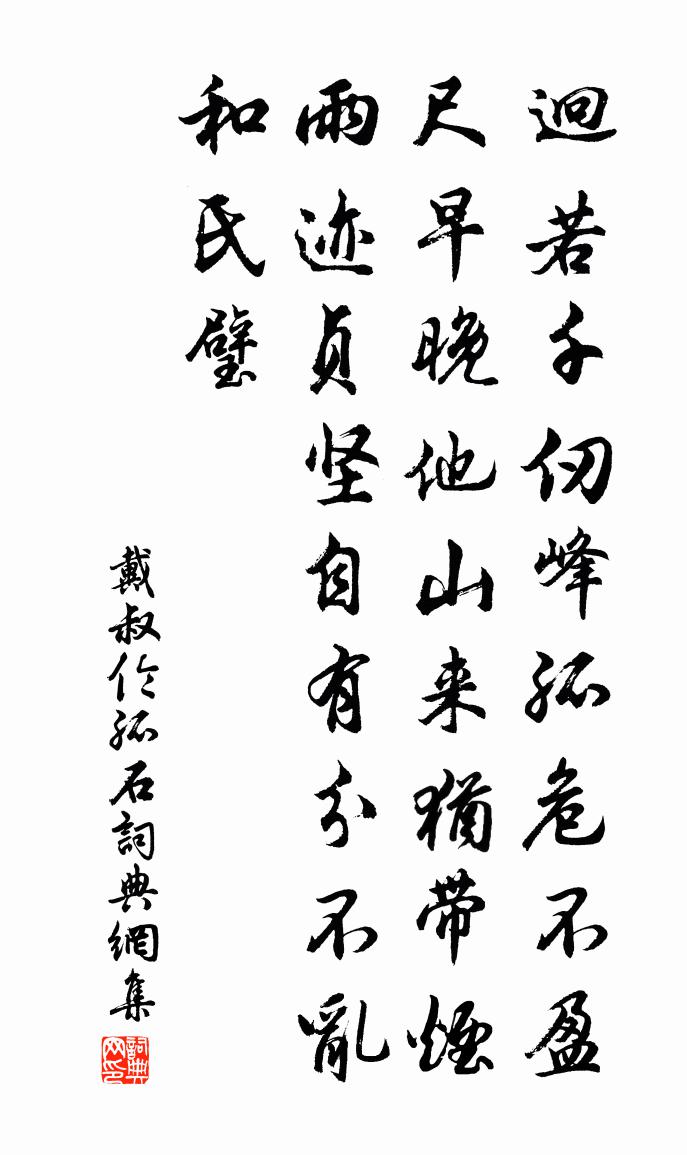 迥若千仞峰孤危不盈
尺早晚他山来猶带煙
雨迹贞坚自有分不亂
和氏璧
戴叔伦孤石詞典網集
詞典网印